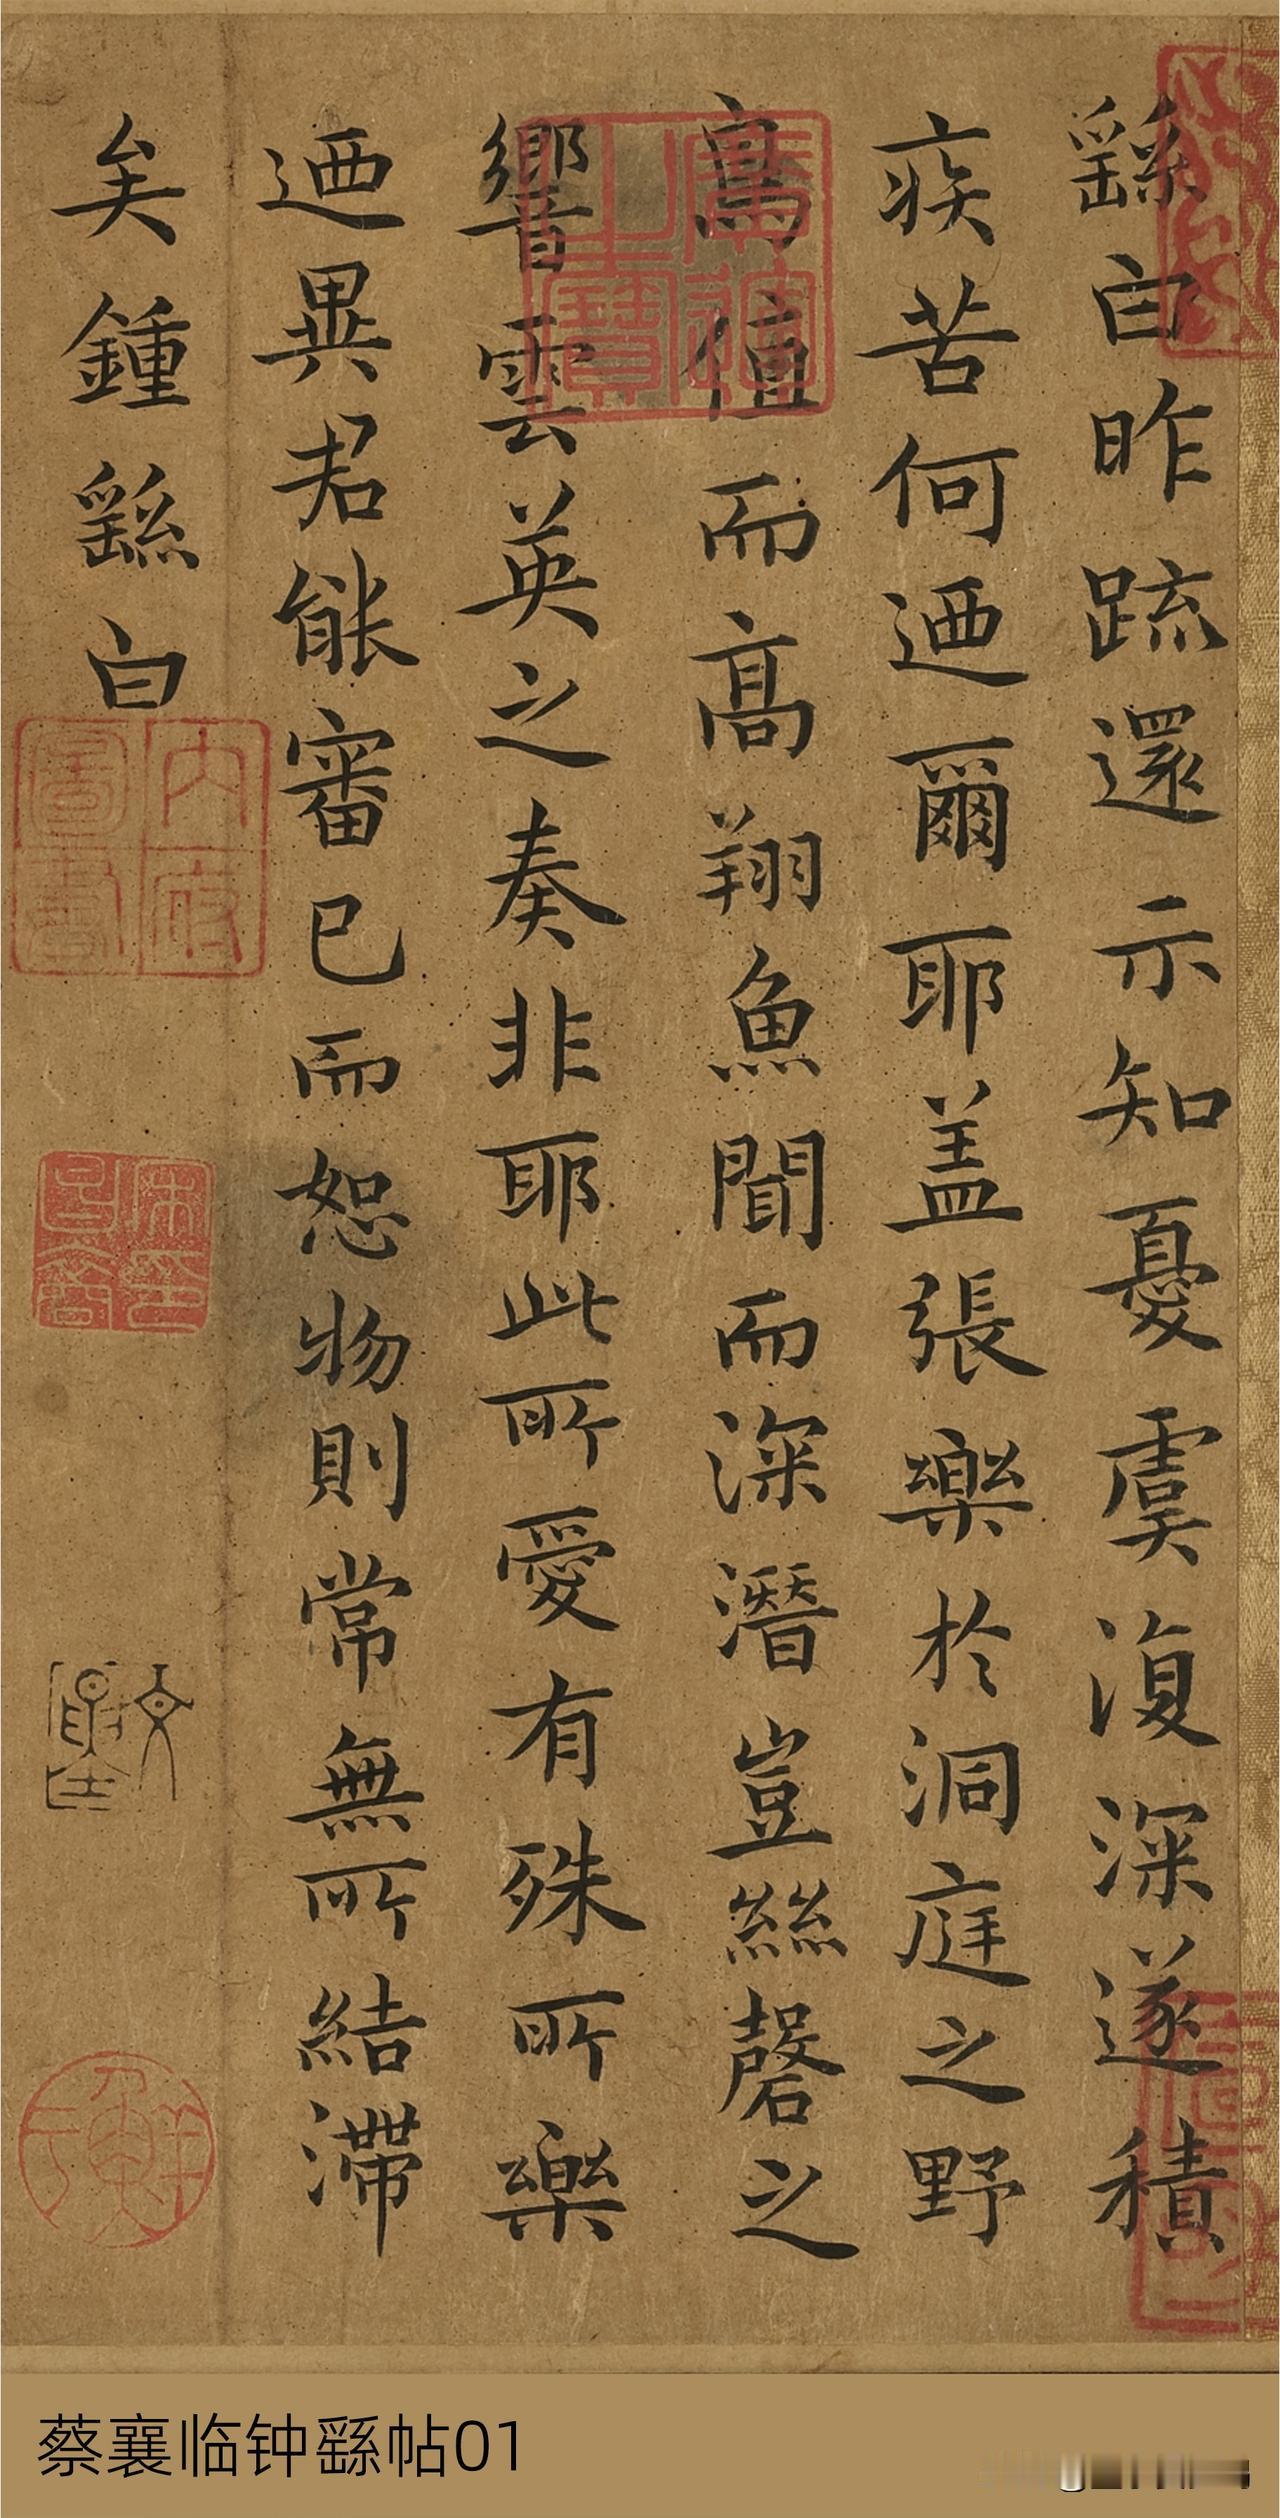 繇白昨疏還示知憂虞復深遂積
疾苦何迺爾耶盖張樂於洞庭之野
鳥值而高翔魚聞而深潛豈絲磬之
響雲英之奏非耶此所愛有殊所樂
迺異君能審已而恕物則常無所結滯
矣鍾繇白
內府
圖書
蔡襄临钟繇帖01